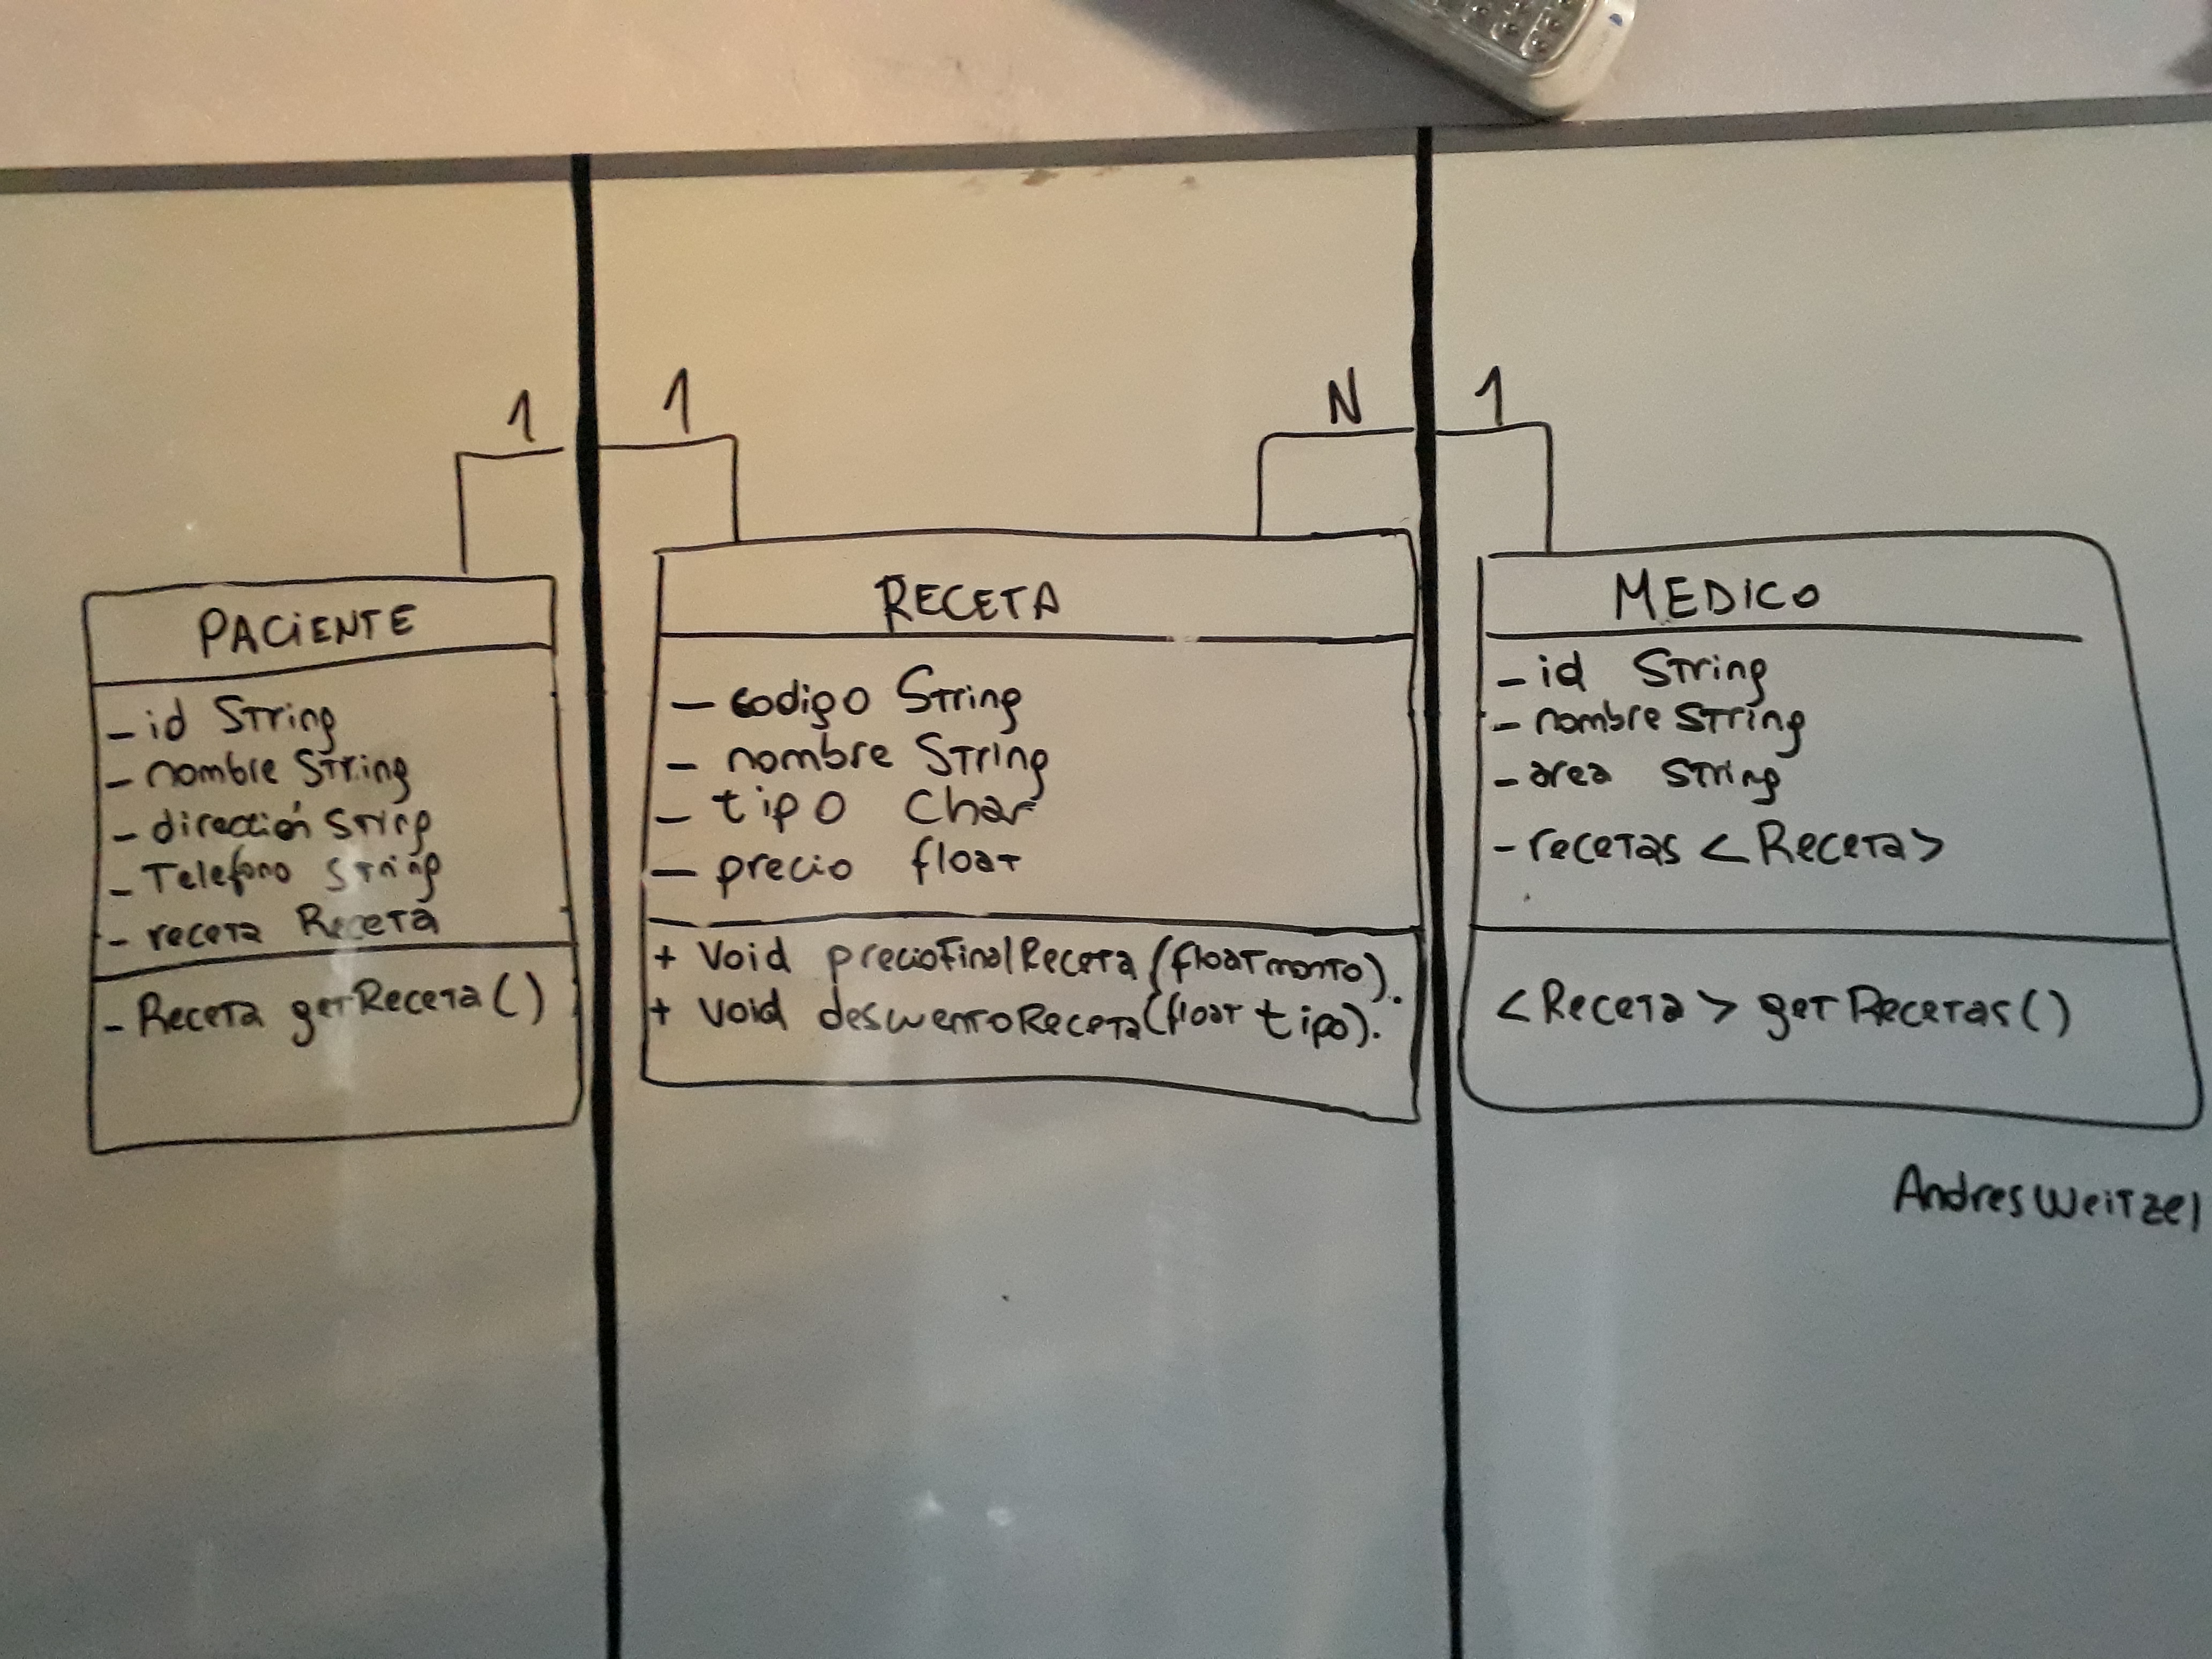 1 1
N 1
PACIENTE
- id String
- nombre String
- dirección String
- Telefono String
- receta Receta
- Receta getReceta()
RECETA
- codigo String
- nombre String
- tipo Char
- precio float
+ Void precioFinalReceta (float monto).
+ Void descuentoReceta(float tipo).
MEDICO
- id String
- nombre String
- area String
- recetas <Receta>
<Receta> getRecetas()
Andres Weitzel